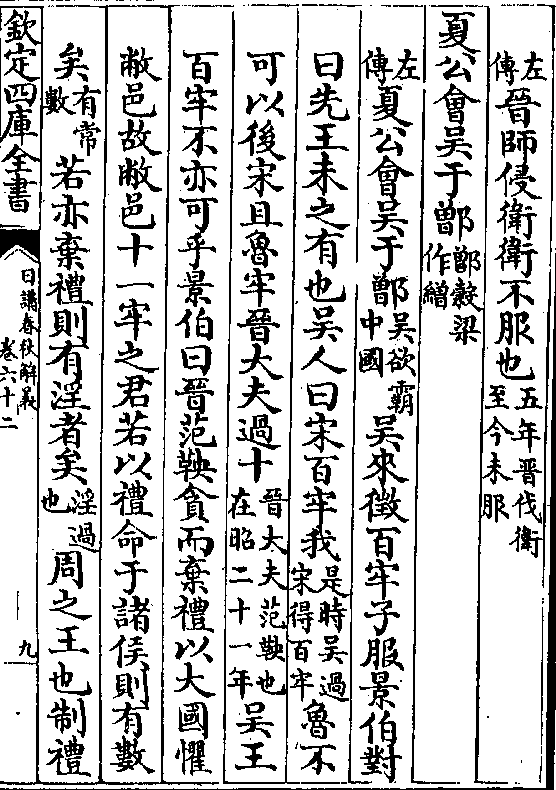 左傳晉師侵衛衛不服也五年晉伐衛至今未服
夏公會吳于鄫鄫穀梁作繒
左傳夏公會吳于鄫吳欲霸中國吳來徵百牢子服景伯對
曰先王未之有也吳人曰宋百牢我是時吳過宋得百牢魯不
可以後宋且魯牢晉大夫過十晉大夫范鞅也在昭二十一年吳王
百牢不亦可乎景伯曰晉范鞅貪而棄禮以大國懼
敝邑故敝邑十一牢之君若以禮命于諸侯則有數
矣有常數若亦棄禮則有淫者矣淫過也周之王也制禮
欽定四庫全書
日講春秋解義
卷六十二
九